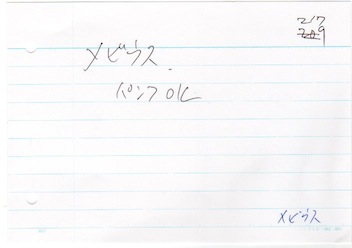 217
209
メビウス
パンフOK
メビウス